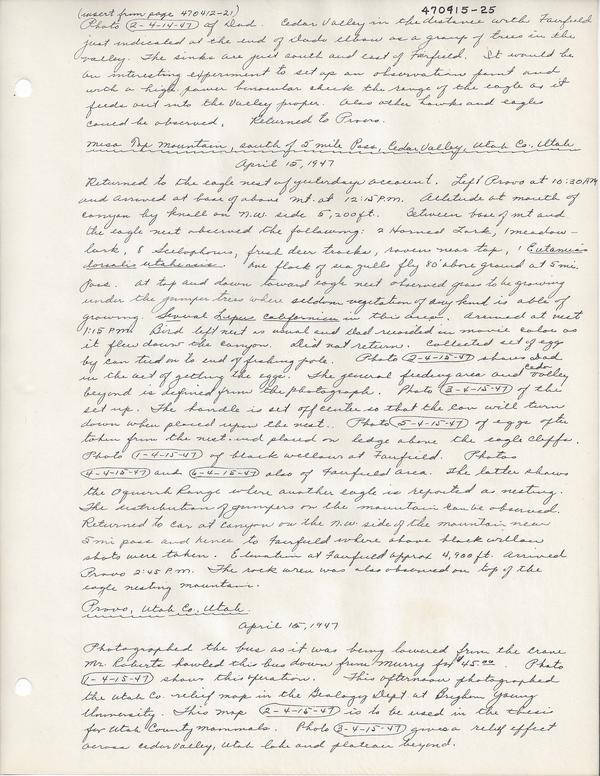 (insert from page 470412-21) 470915-25
Photo (2-4-14-47) of Dad. Cedar Valley in the distance with Fairfield
just indicated at the end of Dads elbow as a group of trees in the
valley. The sinks are just south and east of Fairfield. It would be
an interesting experiment to set up an observation point and
with a high power binocular check the range of the eagle as it
feeds out into the Valley proper. Also other hawks and eagles
could be observed. Returned to Provo.
Mountain, south of 5 mile Pass, Cedar Valley, Utah Co., Utah
April 15, 1947
Returned to the eagle nest of yesterdays account. Left Provo at 10:30 AM
and arrived at base of above Mt. at 12:15 P.M. Altitude at mouth of
canyon by knall on N.W. side 5,200 ft. Between base of mt and
the eagle nest observed the following: 2 Horned Lark, 1 meadow-
lark, 8 fresh deer tracks, ravens near top, 1 Eutamias
dorsalis utahensis. One flock of sea gulls fly 80' above ground at 5 mi.
Pass. At top and down toward eagle nest observed grass to be growing
under the juniper trees where seldom vegetation of any kind is able of
growing. Several Lepus californicus in this area. Arrived at nest
1:15 P.M. Bird left nest as usual and Dad recorded in movie color as
it flew down the canyon. Did not return. Collected set of egg
by can tied on to end of fishing pole. Photo (2-4-15-47) shows Dad
in the act of getting the eggs. The general feeding area and Cedar Valley
beyond is defined from the photograph. Photo (3-4-15-47) of the
set up. The handle is set off center so that the can will turn
down when placed upon the nest. Photo (5-4-15-47) of eggs after
taken from the nest and placed on ledge above the eagle cliffs.
Photo (1-4-15-47) of black willows at Fairfield. Photos
(4-4-15-47) and (6-4-15-47) also of Fairfield area. The latter shows
the Oquirrh Range where another eagle is reported as nesting.
The distribution of junipers on the mountain can be observed.
Returned to car at canyon on the N.W. side of the mountain near
5 mi pass and hence to Fairfield where above black willow
shots were taken. Elevation at Fairfield approx 4,900 ft. Arrived
Provo 2:45 P.M. The rock wren was also observed on top of the
eagle nesting mountain.
Provo, Utah Co., Utah.
April 15, 1947
Photographed the bus as it was being lowered from the crane
Mr. Roberts hawled this bus down from Murry for $45.00. Photo
(1-4-15-47) shows this opration. This afternoon photographed
the Utah Co. relief map in the Geology Dept at Brigham Young
University. This map (2-4-15-47) is to be used in the thesis
for Utah County mammals. Photo (3-4-15-47) gives a relief effect
across cedar valley, Utah lake and plateau beyond.